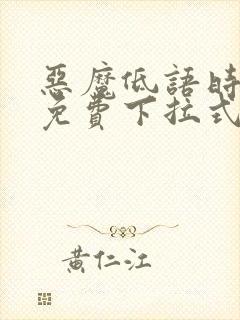 惡魔低語時
免費下拉式
黃仁江